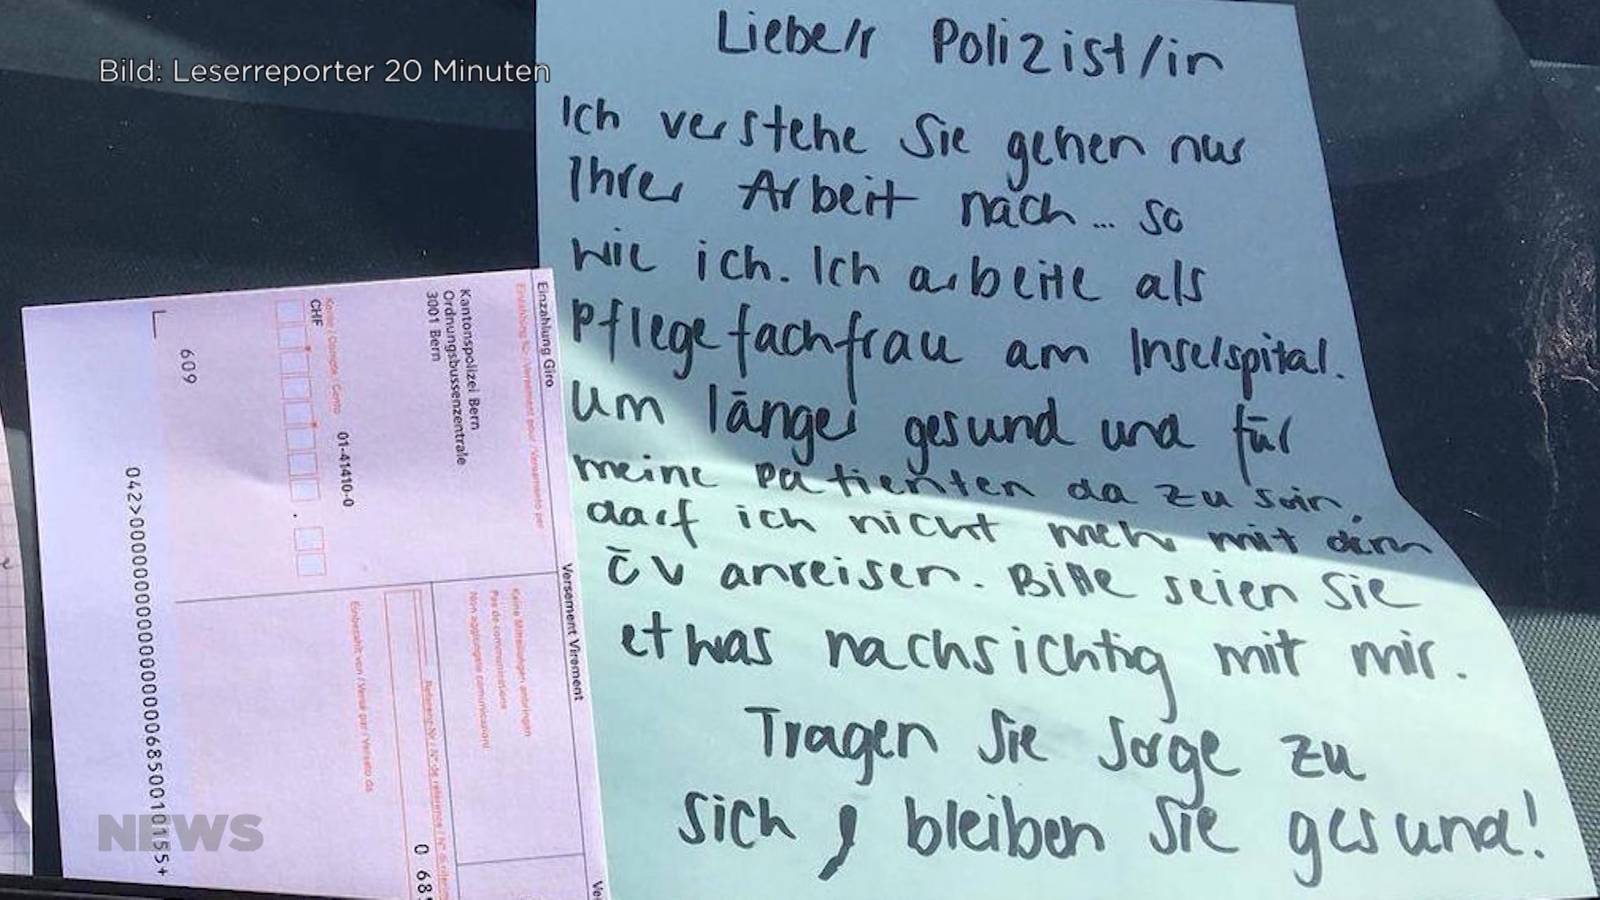 Bild: Leserreporter 20 Minuten
Liebe/r Polizist/in
Ich verstehe Sie gehen nur
Ihrer Arbeit nach... so
wie ich. Ich arbeite als
Pflegefachfrau am Inselspital.
Um länger gesund und für
meine Patienten da zu sein,
darf ich nicht mehr mit dem
ÖV anreisen. Bitte seien Sie
etwas nachsichtig mit mir.
Tragen Sie Sorge zu
sich & bleiben Sie gesund!
Einzahlung Giro
Versement Virement
Einzahlung für / Versement pour / Versamento per
Kantonspolizei Bern
Ordnungsbussenzentrale
3001 Bern
Keine Mitteilungen anbringen
Pas de communications
Non aggiungete comunicazioni
Konto / Compte / Conto 01-41410-0
CHF
Referenz-Nr./N° de référence/N° di
0 685
Einbezahlt von / Versé par / Versato da
609
NEWS